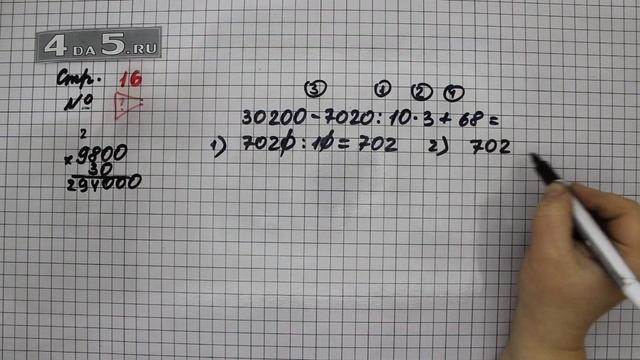 4 DA 5.RU
Стр. 16
№ ?
2
× 9800
30
294000
③ ① ② ④
30200 - 7020 : 10 · 3 + 68 =
1) 7020 : 10 = 702 2) 702